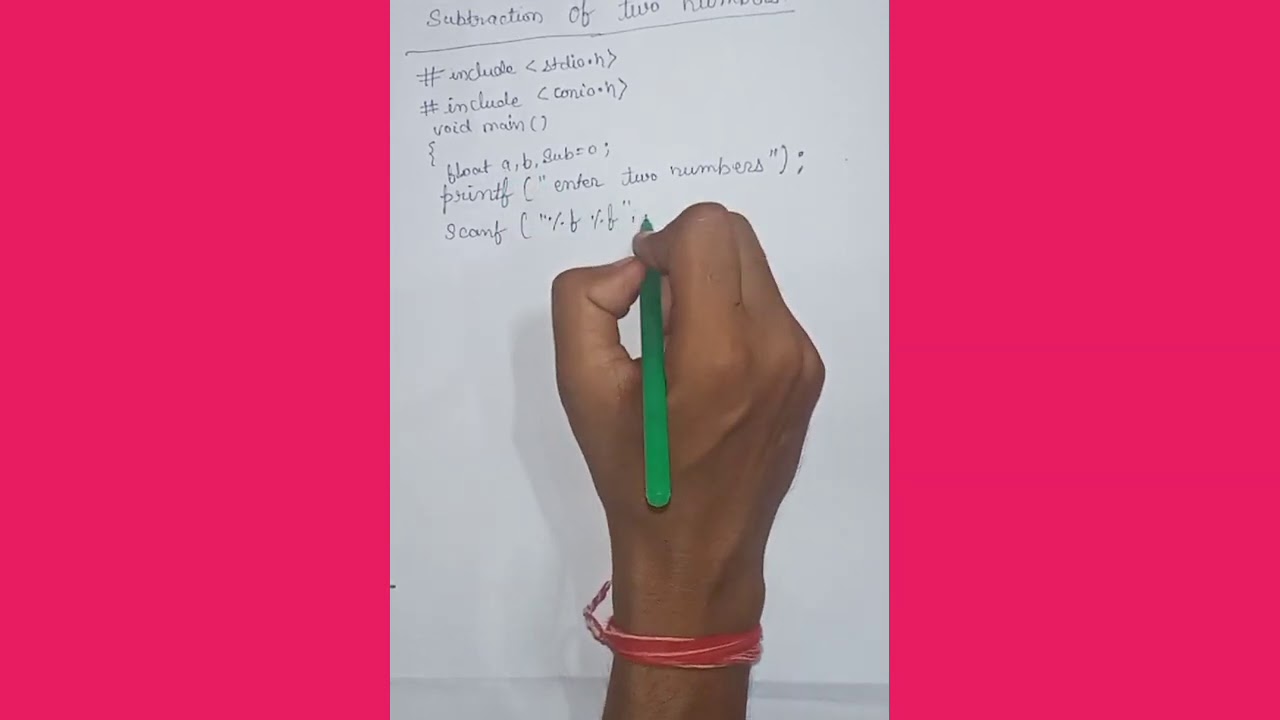 Subtraction of two numbers
# include <stdio.h>
# include <conio.h>
void main()
{
float a, b, sub=0;
printf ("enter two numbers");
scanf ("%f %f",